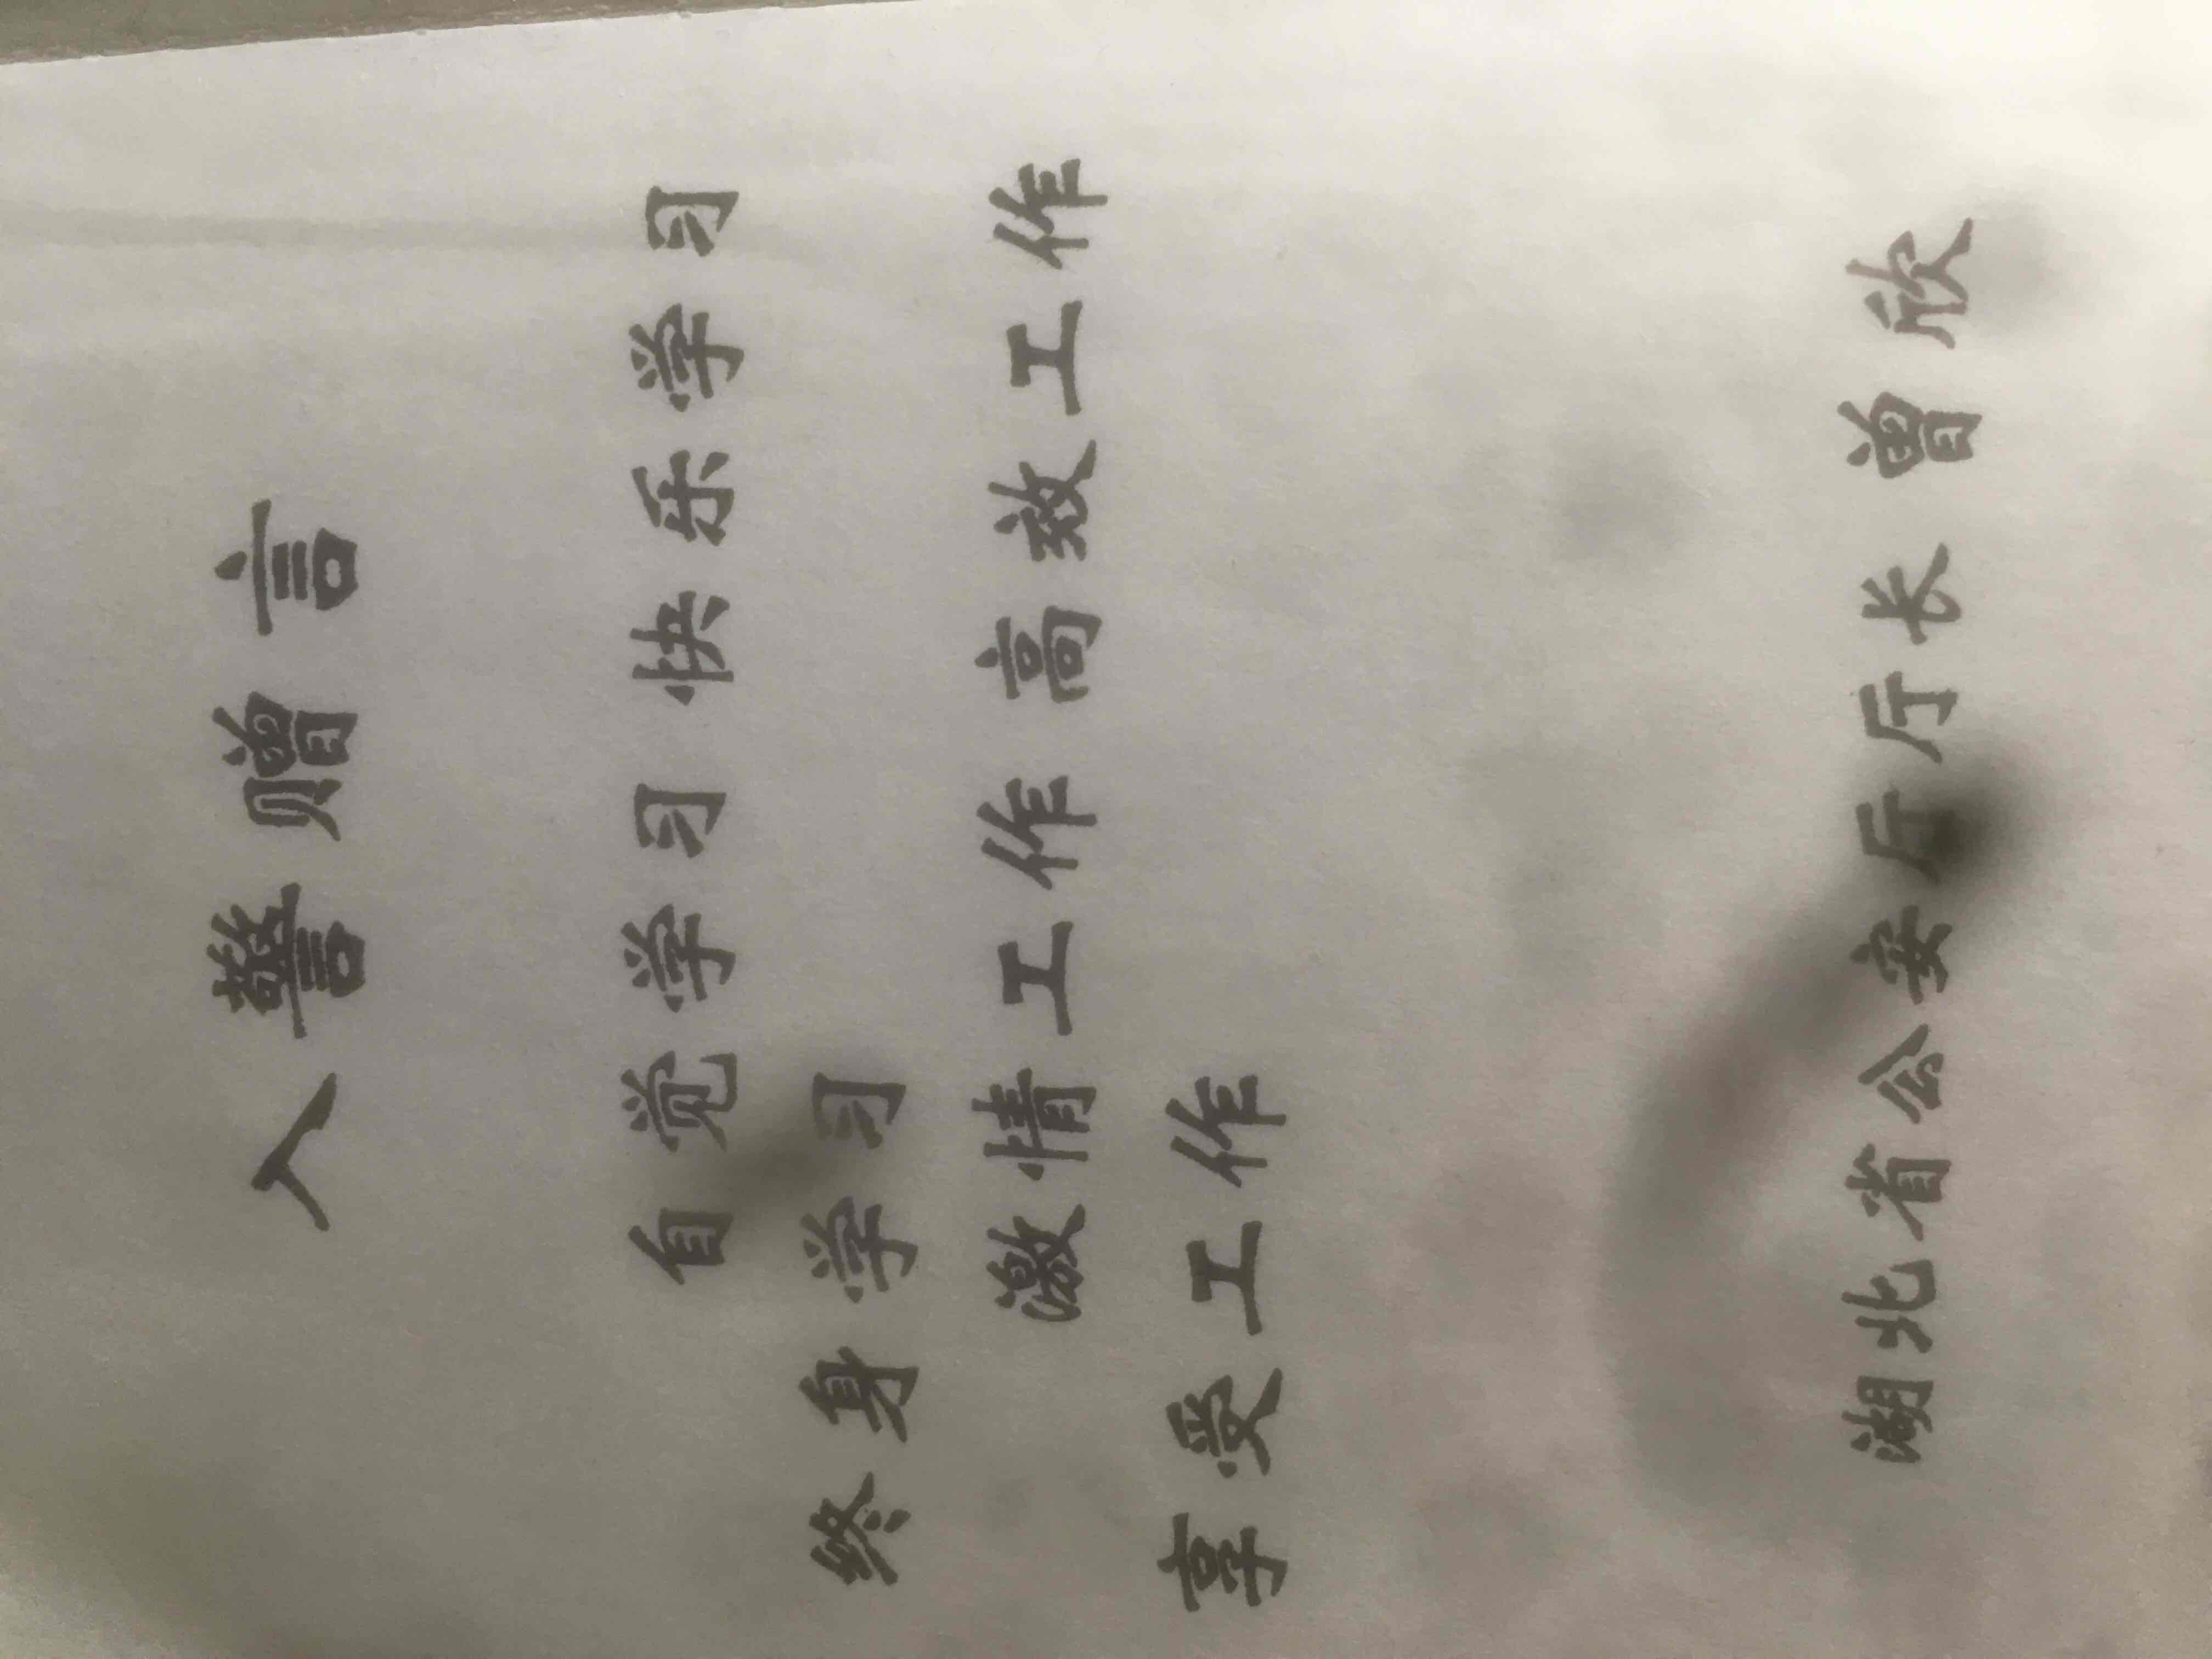 入警赠言
自觉学习 快乐学习
终身学习
激情工作 高效工作
享受工作
湖北省公安厅厅长 曾欣